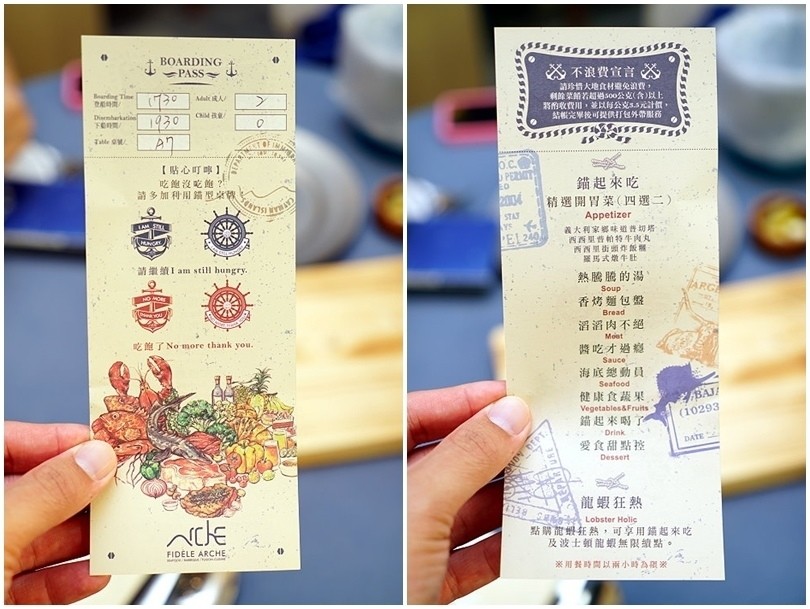 BOARDING
PASS
Boarding Time
登船時間/
1730
Adult 成人/
2
Disembarkation
下船時間/
1930
Child 孩童/
0
Table 桌號/
A7
【貼心叮嚀】
吃飽沒吃飽？
請多加利用錨型桌牌
I AM STILL
HUNGRY
請繼續 I am still hungry.
NO MORE
THANK YOU
吃飽了 No more thank you.
Arche
FIDÈLE ARCHE
不浪費宣言
請珍惜大地食材避免浪費，
剩餘菜餚若超過500公克(含)以上
將酌收費用，並以每公克3.5元計價，
結帳完畢後可提供打包外帶服務
錨起來吃
精選開胃菜(四選二)
Appetizer
義大利家鄉味道普切塔
西西里普帕特牛肉丸
西西里街頭炸飯糰
羅馬式燉牛肚
熱騰騰的湯
Soup
香烤麵包盤
Bread
滔滔肉不絕
Meat
醬吃才過癮
Sauce
海底總動員
Seafood
健康食蔬果
Vegetables&Fruits
錨起來喝了
Drink
愛食甜點控
Dessert
龍蝦狂熱
Lobster Holic
點購龍蝦狂熱，可享用錨起來吃
及波士頓龍蝦無限續點。
※用餐時間以兩小時為限※